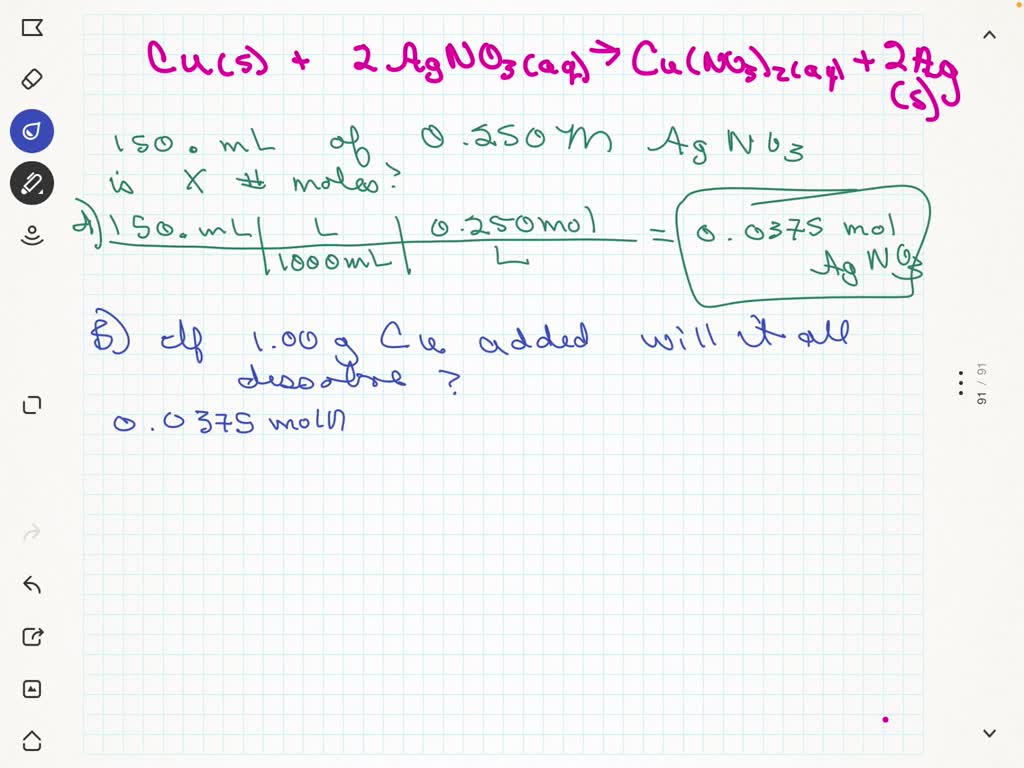 Cu(s) + 2 AgNO3(aq) → Cu(NO3)2(aq) + 2Ag
(s)
150. mL of 0.250 M AgNO3
is X # moles?
A) 150. mL | L | 0.250 mol = 0.0375 mol
1000 mL | L AgNO3
B) If 1.00 g Cu added will it all
dissolve ?
0.0375 mol
91 / 91